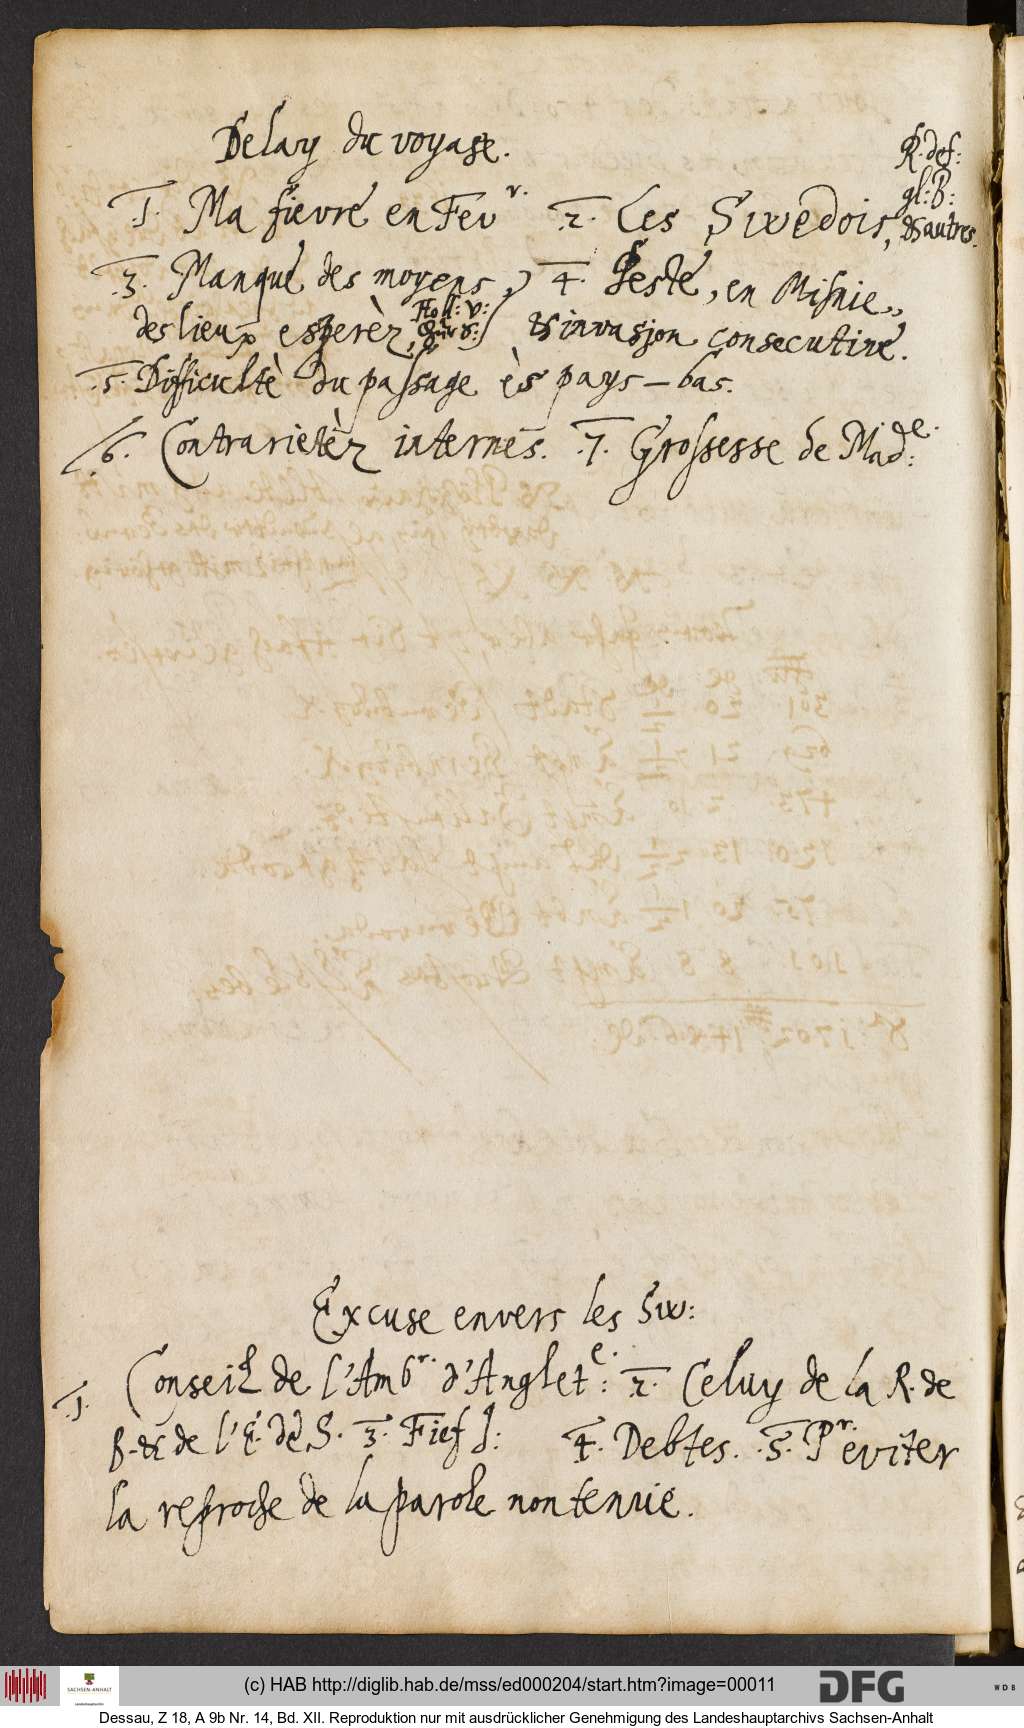 Delay du voyage.
R. def:
gl: B:
1. Ma fievre en Fev.r 2. Les Swedois, & autres.
3. Manque des moyens, 4. Peste, en Misnie,,
des lieux esperèz, Holl: V: & invasion consecutive.
5. Difficultè du passage ès pays-bas.
6. Contrarietèz internes. 7. Grossesse de Mad:de.
Excuse envers les Sw:
1. Conseil de l'Ambr. d'Anglet:e. 2. Celuy de la R. de
B. & de l'E. de S. 3. Fief J: 4. Debtes. 5. Pr. eviter
la reproche de la parole non tenue.
(c) HAB http://diglib.hab.de/mss/ed000204/start.htm?image=00011
SACHSEN-ANHALT
DFG
WDB
Dessau, Z 18, A 9b Nr. 14, Bd. XII. Reproduktion nur mit ausdrücklicher Genehmigung des Landeshauptarchivs Sachsen-Anhalt